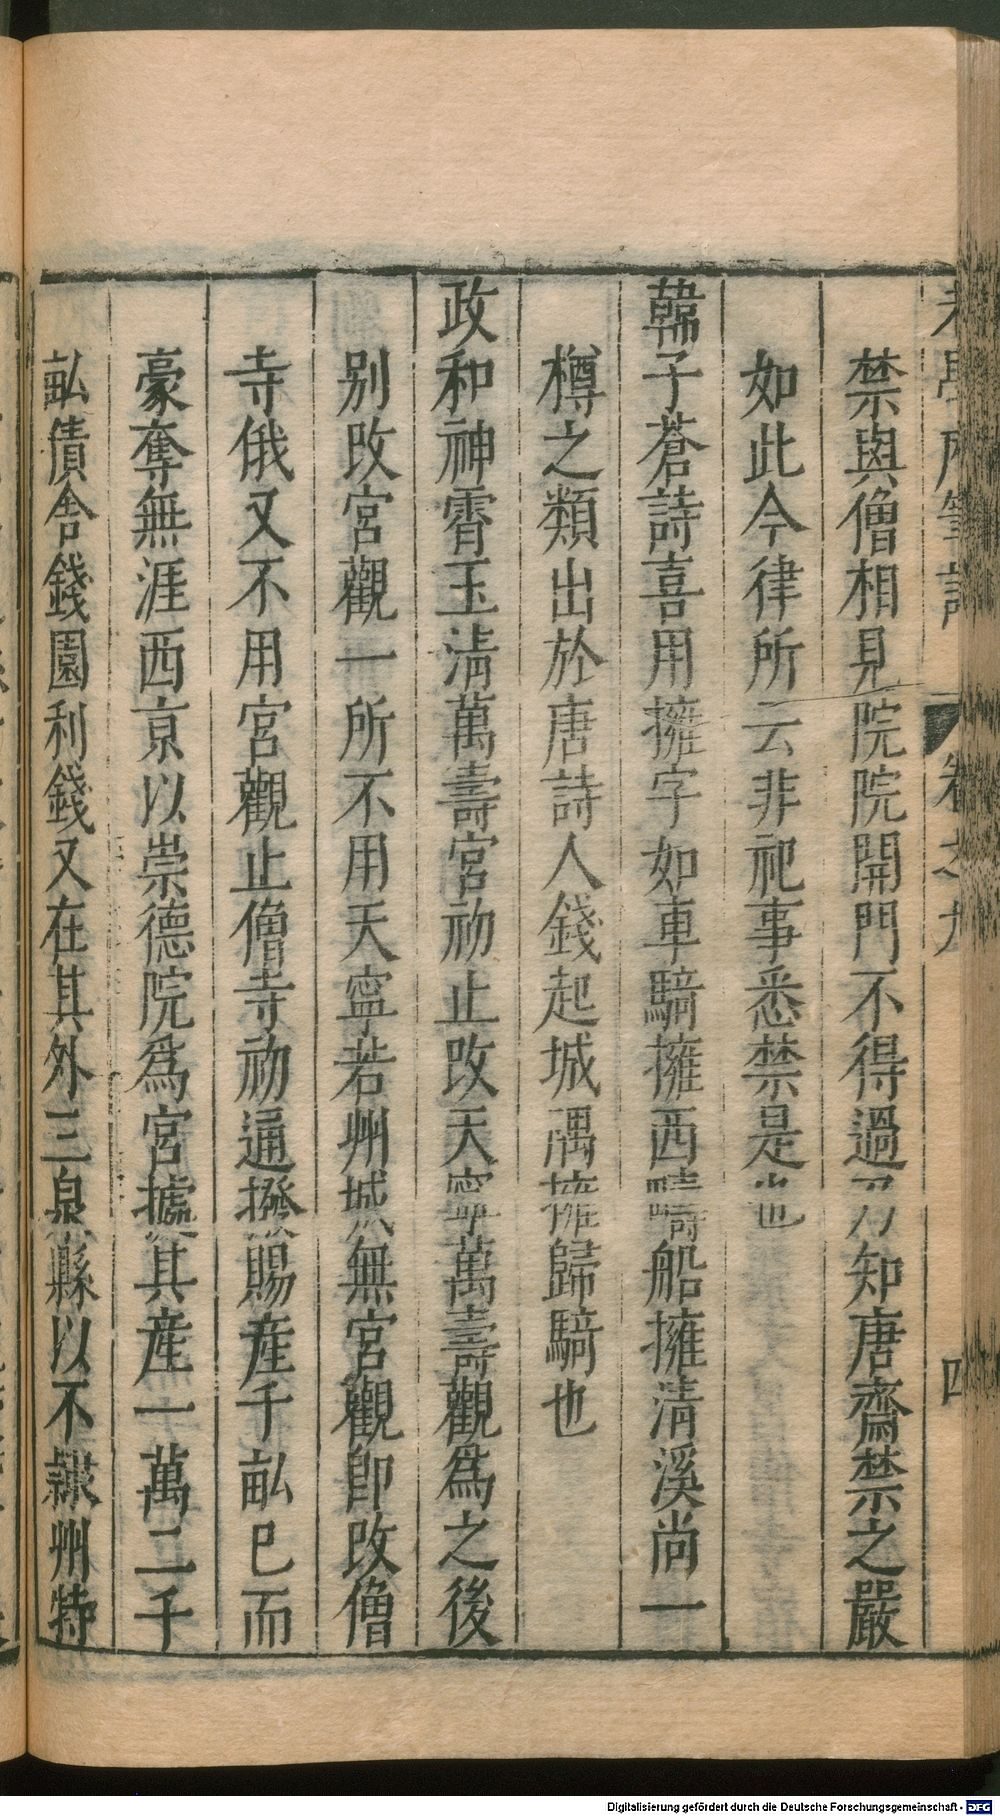 老學庵筆記 卷之九 四
禁與僧相見院院開門不得過刀知唐齋禁之嚴
如此今律所云非祀事悉禁是也
韓子蒼詩喜用擁字如車騎擁西疇船擁清溪尚一
樽之類出於唐詩人錢起城隅擁歸騎也
政和神霄玉清萬壽宮初止改天寧萬壽觀為之後
别改宮觀一所不用天寧若州城無宮觀卽改僧
寺俄又不用宮觀止僧寺初通撥賜產千畝已而
豪奪無涯西京以崇德院為宮據其產一萬二千
畝僓舍錢園利錢又在其外三泉縣以不隸州特
Digitalisierung gefördert durch die Deutsche Forschungsgemeinschaft - DFG